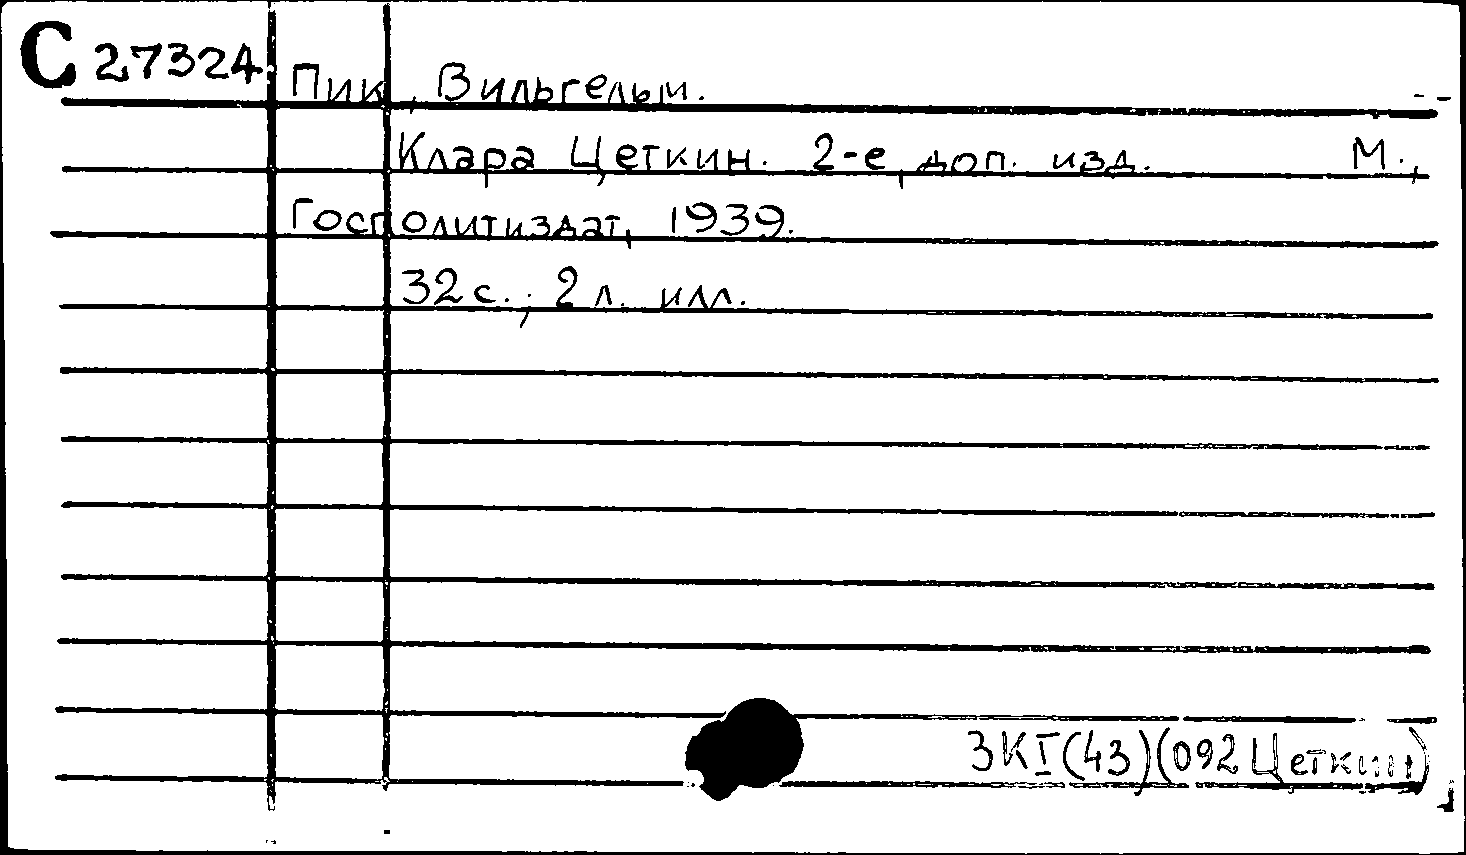 С 27324
Пик, Вильгельм.
Клара Цеткин. 2-е, доп. изд. М.,
Госполитиздат, 1939.
32 с.; 2 л. илл.
3КI(43)(092 Цеткин)